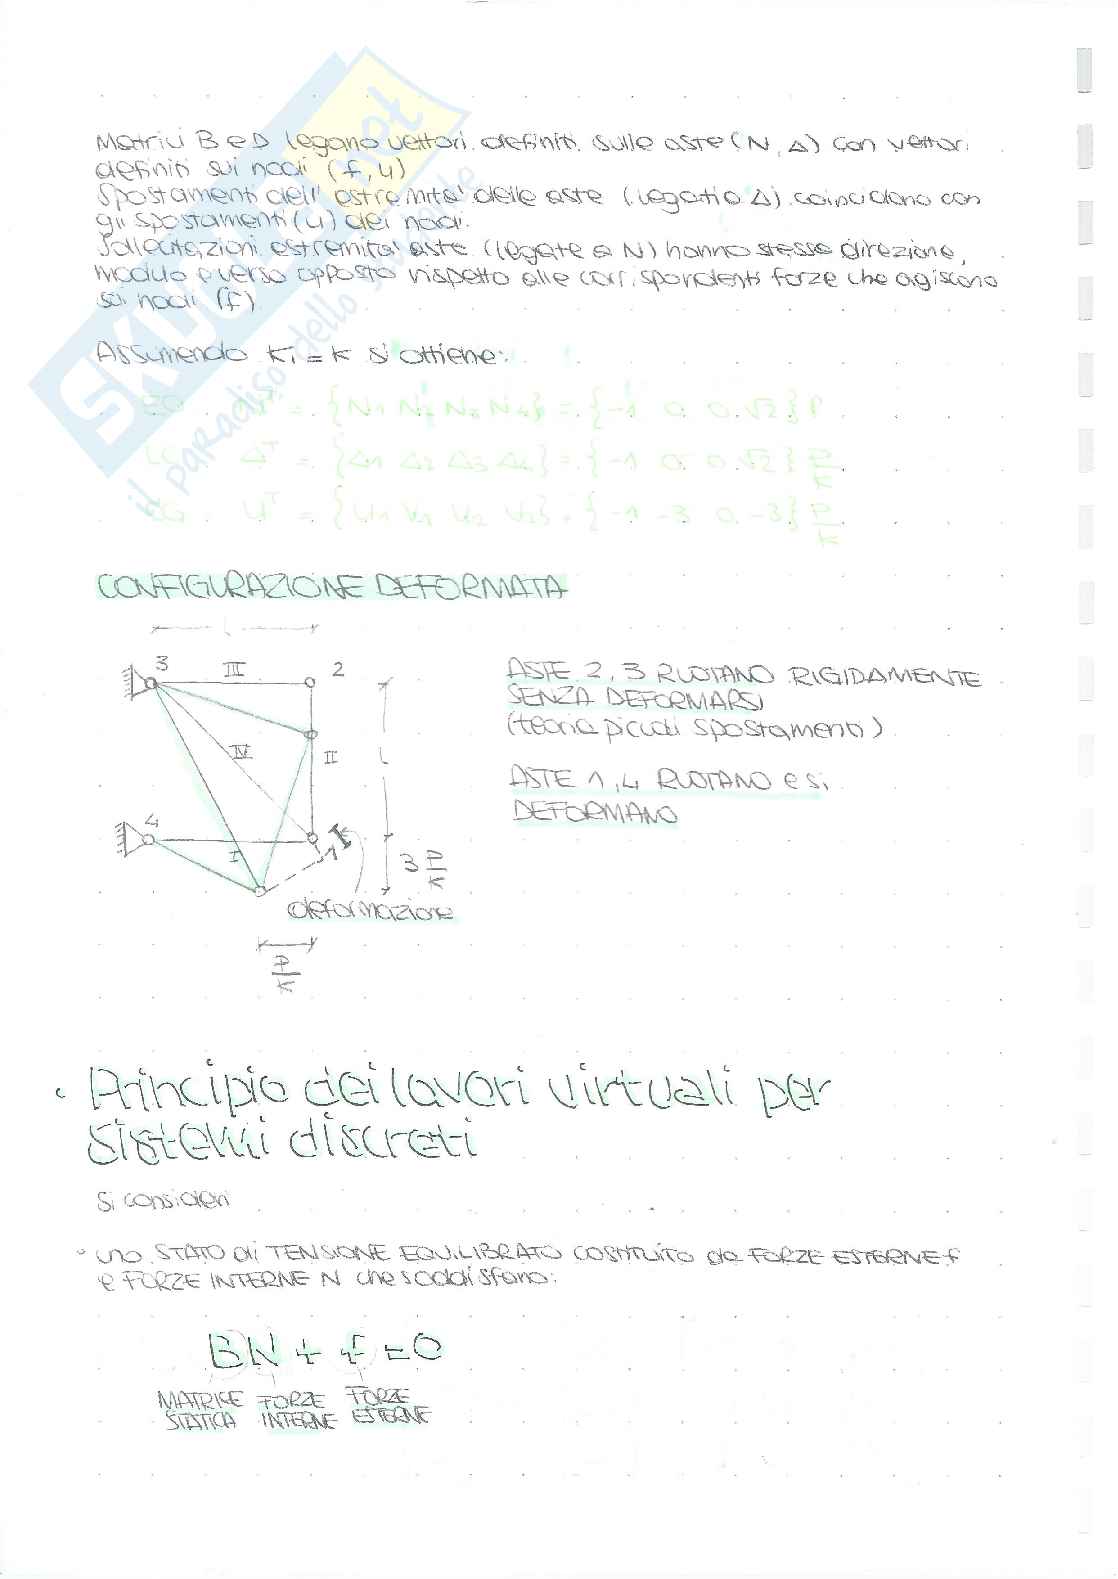 Matrici B e D legano vettori definiti sulle aste (N, Δ) con vettori
definiti sui nodi (f, u)
Spostamenti dell' estremità delle aste (legati a Δ) coincidono con
gli spostamenti (u) dei nodi.
Sollecitazioni estremità aste (legate a N) hanno stessa direzione,
modulo e verso opposto rispetto alle corrispondenti forze che agiscono
sui nodi (f)
Assumendo Ki = K si ottiene:
EQ. = {N1 N2 N3 N4} = {-1 0 0 √2} P
LC Δᵀ = {Δ1 Δ2 Δ3 Δ4} = {-1 0 0 √2} P/K
CG. Uᵀ = {U1 V1 U2 V2} = {-1 -3 0 -3} P/K
CONFIGURAZIONE DEFORMATA
L
3 III 2
IV II L
4 I 1
3 P/K
deformazione
P/K
ASTE 2, 3 RUOTANO RIGIDAMENTE
SENZA DEFORMARSI
(teoria piccoli spostamenti)
ASTE 1, 4 RUOTANO e si
DEFORMANO
Principio dei lavori virtuali per
sistemi discreti
Si consideri
uno STATO di TENSIONE EQUILIBRATO COSTITUITO da FORZE ESTERNE f
e FORZE INTERNE N che soddisfano:
BN + f = 0
MATRICE FORZE FORZE
STATICA INTERNE ESTERNE
il paradiso dello studente